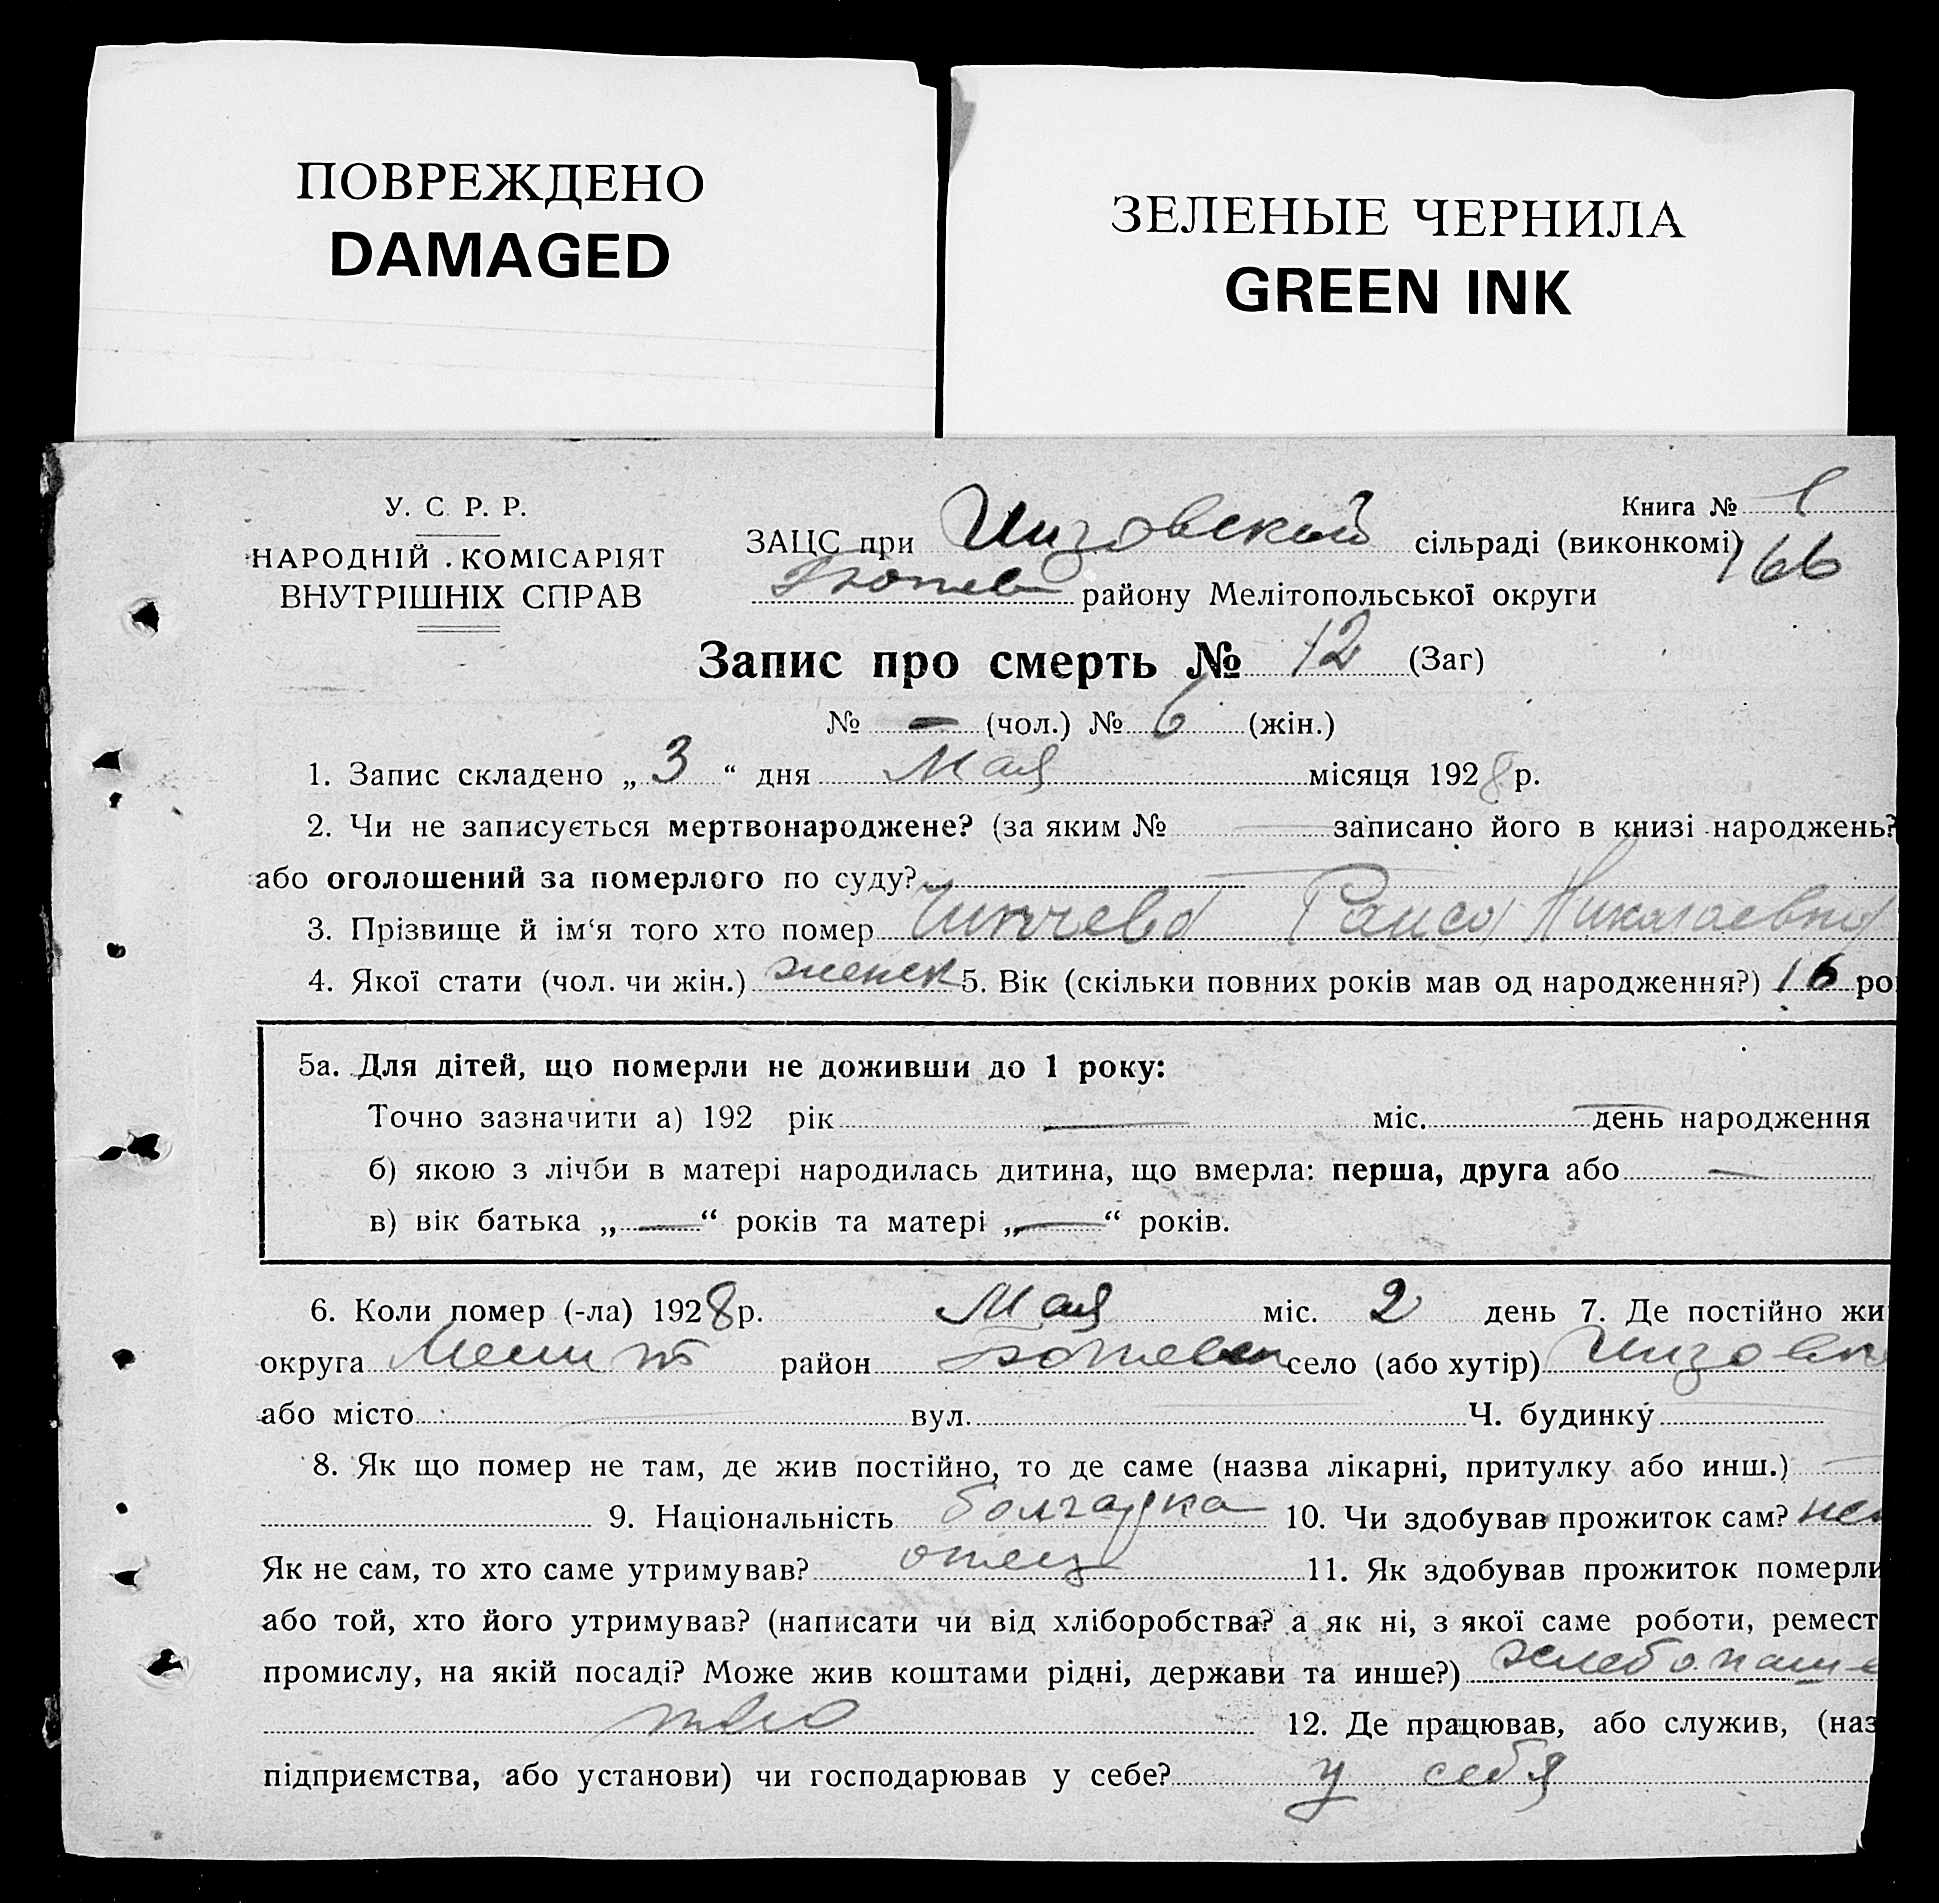 ПОВРЕЖДЕНО
DAMAGED
ЗЕЛЕНЫЕ ЧЕРНИЛА
GREEN INK
У. С. Р. Р.
НАРОДНІЙ КОМІСАРІЯТ
ВНУТРІШНІХ СПРАВ
Книга № 1
ЗАЦС при Инзовской сільраді (виконкомі)
166
Ботиев району Мелітопольської округи
Запис про смерть № 12 (Заг)
№ — (чол.) № 6 (жін.)
1. Запис складено „ 3 “ дня Мая місяця 1928 р.
2. Чи не записується мертвонароджене? (за яким № — записано його в книзі народжень?
або оголошений за померлого по суду? —
3. Прізвище й ім‘я того хто помер Раиса Николаевна
4. Якої стати (чол. чи жін.) женск 5. Вік (скільки повних років мав од народження?) 16 ро
5а. Для дітей, що померли не доживши до 1 року:
Точно зазначити а) 192 рік — міс. — день народження
б) якою з лічби в матері народилась дитина, що вмерла: перша, друга або —
в) вік батька „ — “ років та матері „ — “ років.
6. Коли помер (-ла) 1928 р. Мая міс. 2 день 7. Де постійно жи
округа Мелит район Ботиевск село (або хутір) Инзовк
або місто — вул. — Ч. будинку —
8. Як що помер не там, де жив постійно, то де саме (назва лікарні, притулку або инш.) —
9. Національність болгарка 10. Чи здобував прожиток сам? нет
Як не сам, то хто саме утримував? отец 11. Як здобував прожиток померли
або той, хто його утримував? (написати чи від хліборобства? а як ні, з якої саме роботи, ремест
промислу, на якій посаді? Може жив коштами рідні, держави та инше?) хлебопаше
ство 12. Де працював, або служив, (наз
підприємства, або установи) чи господарював у себе? у себя